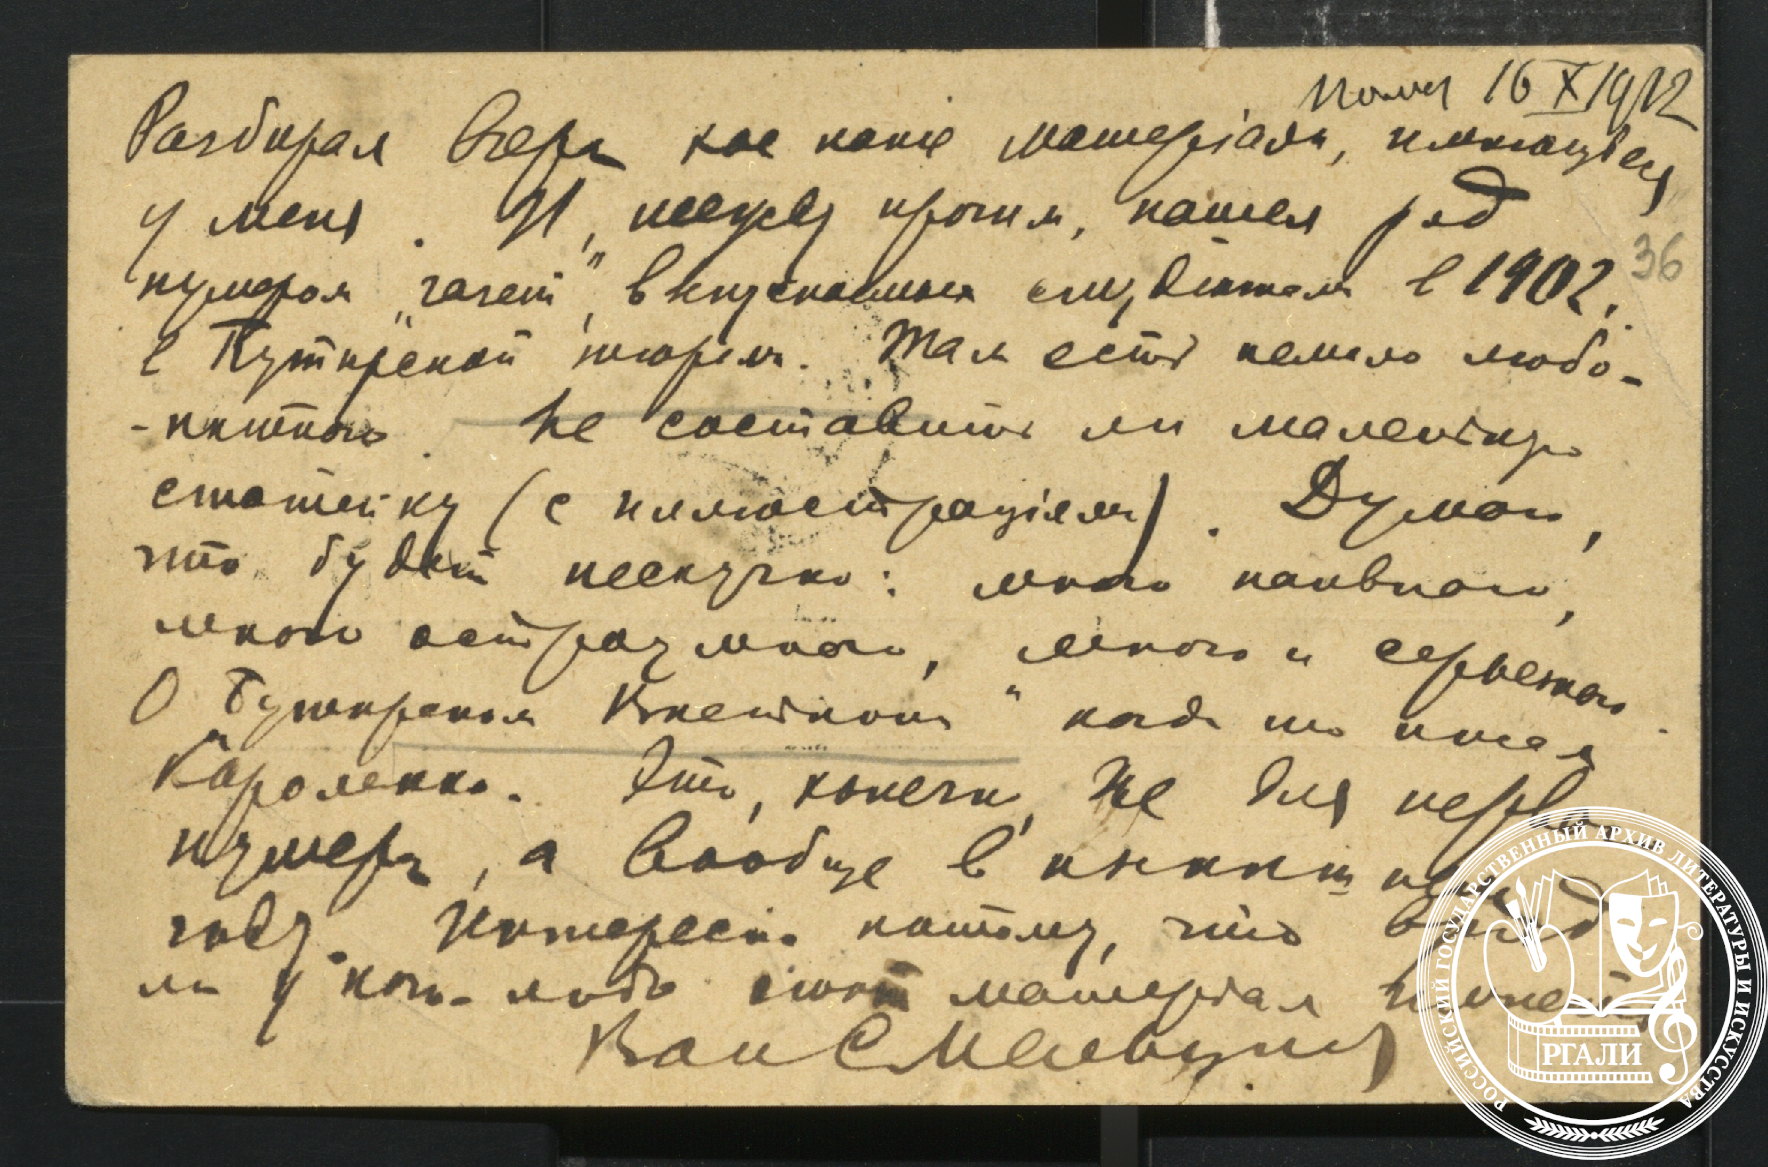 16 X 1912
Разбирал вчера кое какие матерiалы, имеющiеся
у меня. И, между прочим, нашел ряд
36
нумеров „газет", выпускавшихся студентами в 1902 г.
в Бутырской тюрьме. Там есть немало любо-
-пытного. Не составить ли маленькую
статейку (с иллюстрацiями). Думаю,
что будет нескучно: много наивного,
много остроумного, много и серьезного.
О Бутырском Внешкоме" когда то писал
Короленко. Это, конечно, не для перваго
нумера, а вообще в
году. Интересно потому, что вряд
ли у кого-либо этот матерiал имеется
Ваш С Мельгунов
РОССИЙСКИЙ ГОСУДАРСТВЕННЫЙ АРХИВ ЛИТЕРАТУРЫ И ИСКУССТВА
РГАЛИ